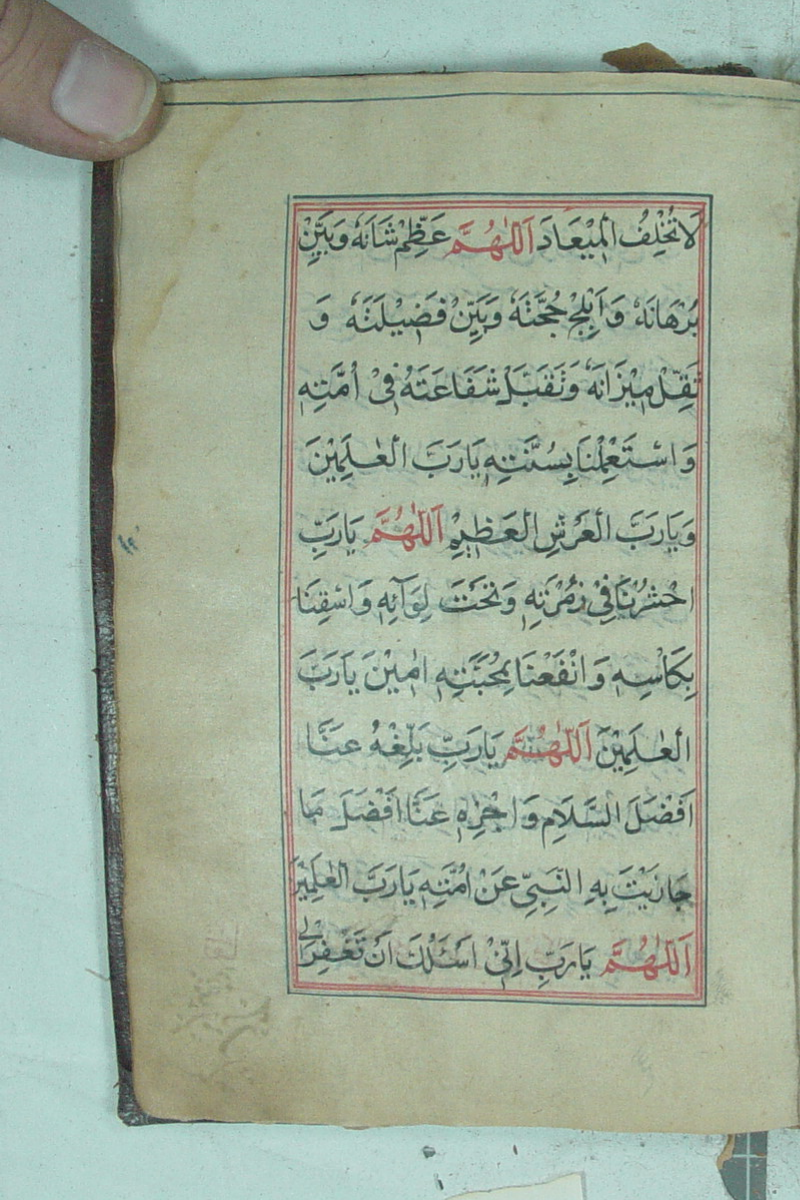 لَا تُخْلِفُ الْمِيْعَادَ اَللّٰهُمَّ عَظِّمْ شَانَهٗ وَبَيِّنْ
بُرْهَانَهٗ وَاَبْلِجْ حُجَّتَهٗ وَبَيِّنْ فَضِيْلَتَهٗ وَ
تَقَبَّلْ مِيْزَانَهٗ وَتَقَبَّلْ شَفَاعَتَهٗ فِىْ اُمَّتِهٖ
وَاسْتَعْمِلْنَا بِسُنَّتِهٖ يَارَبَّ الْعٰلَمِيْنَ
وَيَارَبَّ الْعَرْشِ الْعَظِيْمِ اَللّٰهُمَّ يَارَبِّ
احْشُرْنَا فِىْ زُمْرَتِهٖ وَتَحْتَ لِوَآئِهٖ وَاسْقِنَا
بِكَاْسِهٖ وَانْفَعْنَا بِمُحَبَّتِهٖ اٰمِيْنَ يَارَبَّ
الْعٰلَمِيْنَ اَللّٰهُمَّ يَارَبِّ بَلِّغْهُ عَنَّا
اَفْضَلَ السَّلَامِ وَاجْزِهٖ عَنَّا اَفْضَلَ مَا
جَازَيْتَ بِهِ النَّبِىَّ عَنْ اُمَّتِهٖ يَارَبَّ الْعٰلَمِيْنَ
اَللّٰهُمَّ يَارَبِّ اِنِّىْ اَسْئَلُكَ اَنْ تَغْفِرَلِىْ